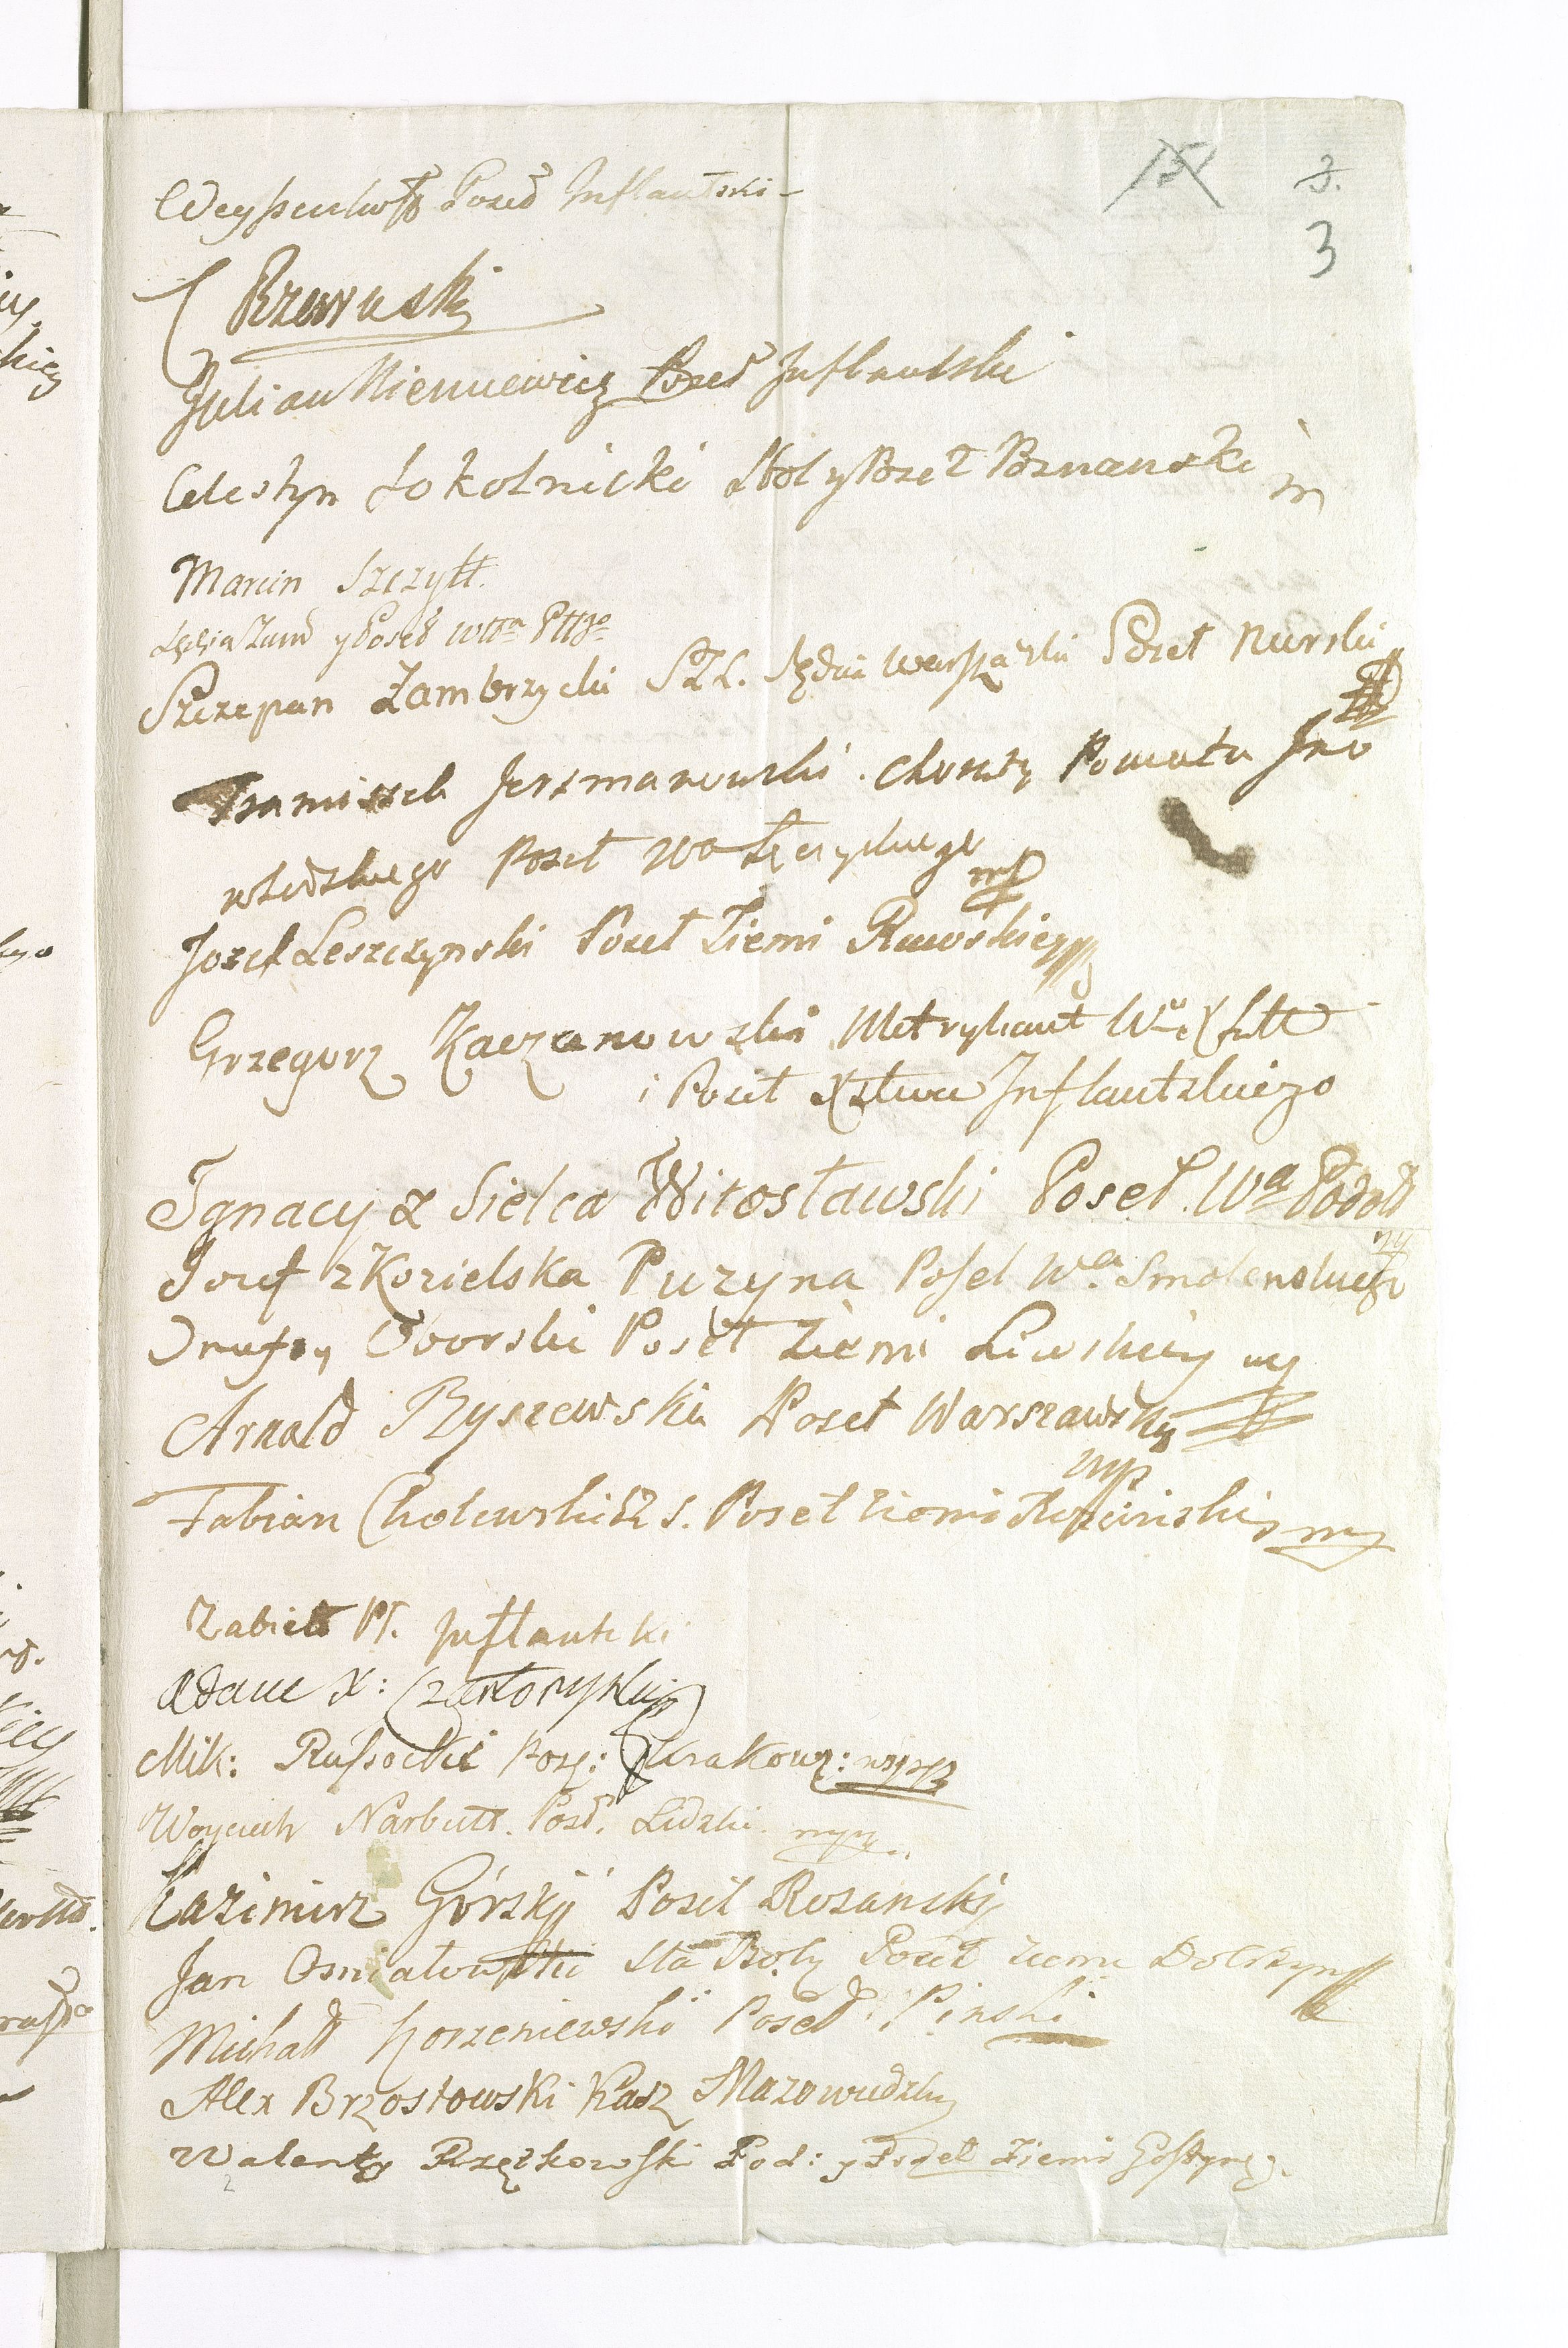 151 3.
3
Weyssenhoff Poseł Inflantski
Rzewuski
Julian Niemcewicz Poseł Inflantski
Celestyn Sokolnicki Stol y Poseł Poznanski m
Marcin Szczytt
Sędzia Ziem y Poseł Wtta Pttgo
Szczepan Zambrzycki SZL. Sędzia Warszazki Poseł Nurski
Franciszek Jerzmanowski Chorąży Powiatu Ino
włodzkiego Poseł Wa Łęczyckiego mp
Jozef Leszczynski Poseł Ziemi Rawskiey
Grzegorz Kaczanowski Metrykant W
i Poseł Xstwa Inflantskiego
Ignacy z Sielca Witosławski Poseł Wa Podol
Jozef z Kozielska Puzyna Poseł Wa Smolenskiego
Onufry Oborski Poseł Ziemi Liwskiey mp
Arnold Byszewski Poseł Warszawski
mp
Fabian Cholewski Poseł Ziemi mp
Zabiełło Pł. Inflantski
Adam X: Czartoryski
Mik: Russocki Pos: Krakow: mp
Woyciech Narbutt. Poseł. Lidzki. mp
Kazimirz Górskij Poseł Rozanskij
Jan Osniałowski Sta Boly Poseł Ziemi Dobrzyn
Michał Korzeniewski Poseł Pinski
Alex Brzostowski Kasz Mazowiedzki
Walenty Rzętkowski Pod: y Poseł Ziemi Gostyn: